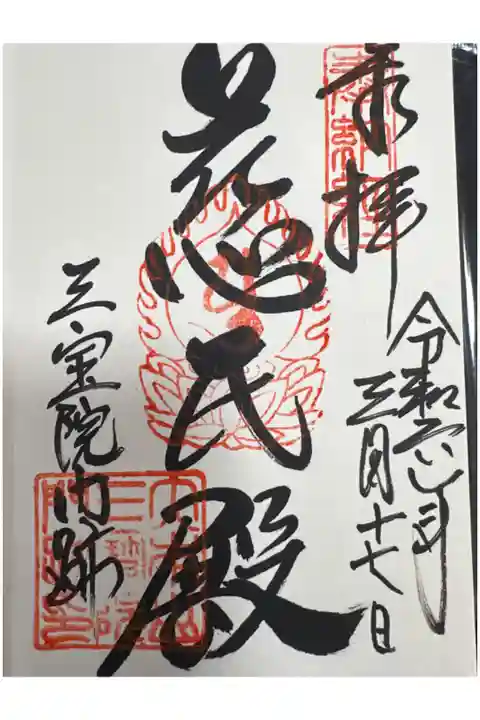 奉拝
令和六年
三月十七日
慈氏殿
三宝院門跡